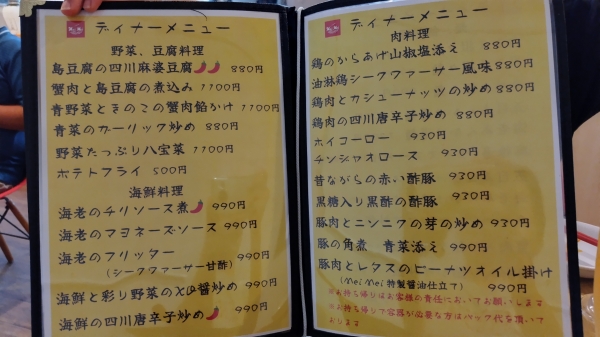 ディナーメニュー
野菜、豆腐料理
島豆腐の四川麻婆豆腐 880円
蟹肉と島豆腐の煮込み 1100円
青野菜ときのこの蟹肉餡かけ 1100円
青菜のガーリック炒め 880円
野菜たっぷり八宝菜 1100円
ポテトフライ 500円
海鮮料理
海老のチリソース煮 990円
海老のマヨネーズソース 990円
海老のフリッター 990円
(シークァーサー甘酢)
海鮮と彩り野菜のXO醤炒め 990円
海鮮の四川唐辛子炒め 990円
ディナーメニュー
肉料理
鶏のからあげ山椒塩添え 880円
油淋鶏シークァーサー風味 880円
鶏肉とカシューナッツの炒め 880円
鶏肉の四川唐辛子炒め 880円
ホイコーロー 930円
チンジャオロース 930円
昔ながらの赤い酢豚 930円
黒糖入り黒酢の酢豚 930円
豚肉とニンニクの芽の炒め 930円
豚の角煮 青菜添え 990円
豚肉とレタスのピーナツオイル掛け
(Mei Mei 特製醤油仕立て) 990円
※お持ち帰りはお客様の責任においてお願いします
※お持ち帰りで容器が必要な方はパック代を頂いて
おります